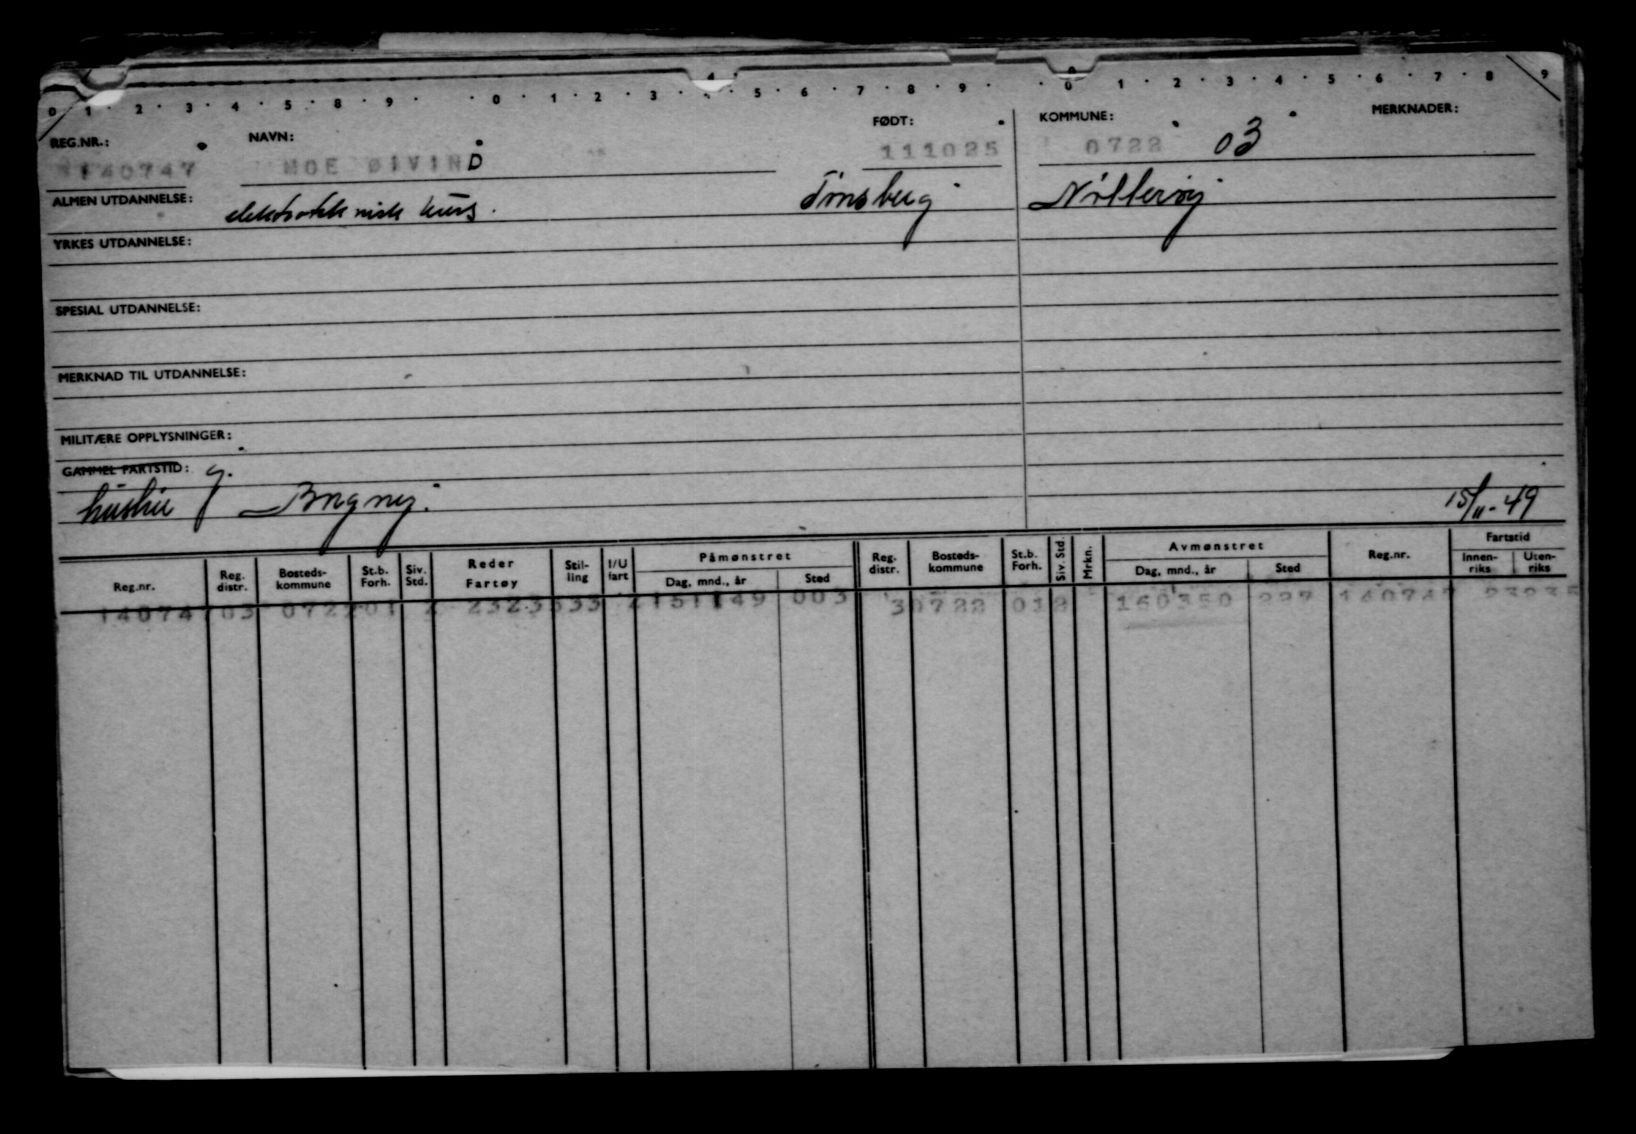 0 1 · 2 · 3 · 4 · 5 · 8 · 9 · · 0 · 1 · 2 · 3 · 4 · 5 · 6 · 7 · 8 · 9 · · 0 · 1 · 2 · 3 · 4 · 5 · 6 · 7 · 8 9
REG.NR.: NAVN: FØDT: KOMMUNE: MERKNADER:
140747 MOE ØIVIND 111025 0722 03
ALMEN UTDANNELSE: kurs. Tønsberg Nøtterøy
YRKES UTDANNELSE:
SPESIAL UTDANNELSE:
MERKNAD TIL UTDANNELSE:
MILITÆRE OPPLYSNINGER:
GAMMEL FARTSTID: g.
15/11-49
Reg.nr. Reg. distr. Bosteds-kommune St.b. Forh. Siv. Std. Reder Fartøy Stil-ling I/U fart Påmønstret Dag, mnd., år Sted Reg. distr. Bosteds-kommune St.b. Forh. Siv. Std. Mrkn. Avmønstret Dag, mnd., år Sted Reg.nr. Fartstid Innen-riks Uten-riks
140747 03 0722 01 2 2323 533 2 151149 003 3 0722 012 160350 227 140747 2323